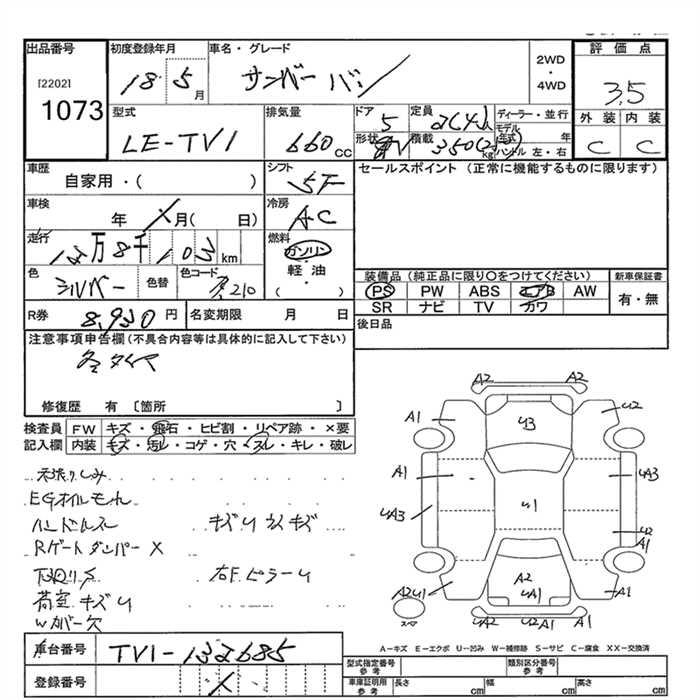 出品番号 初度登録年月 車名・グレード 2WD・4WD 評価点
[2202]
1073
18 5月 サンバー バン 3.5
型式 排気量 ドア 定員 ディーラー・並行 外装 内装
LE-TV1 660cc 5 2(4)人 モデル年式 年 C C
形状 積載 350( kg ハンドル 左・右
車歴 シフト セールスポイント(正常に機能するものに限ります)
自家用・( ) 5F
車検 冷房
年 X月( 日) AC
走行 燃料
万8千 km ガソリン・軽油 ( )
色 シルバー 色替 色コード 装備品(純正品に限り〇をつけてください) 新車保証書
PS PW ABS エアB AW 有・無
SR ナビ TV カワ
R券 8,930円 名変期限 月 日 後日品
注意事項申告欄(不具合内容等は具体的に記入して下さい)
冬タイヤ
修復歴 有 〔箇所 〕
検査員 FW キズ・飛石・ヒビ割・リペア跡・×要
記入欄 内装 キズ・汚レ・コゲ・穴・スレ・キレ・破レ
EGオイルモレ
ハンドルスレ キズU
Rゲートダンパー X
下回りS 右FピラーU
荷室キズU
Wカバー欠
A2 A2
A1 U3 U2
A1 UA3
UA3 U1 U2
A1
A2U1 A2 UA1 A1
スペア U2 U2A1 A2
A-キズ E-エクボ U-凹み W-補修跡 S-サビ C-腐食 XX-交換済
車台番号 TV1-132685
登録番号 X
型式指定番号 参考 類別区分番号 参考
車庫証明用 参考 長さ cm 幅 cm 高さ cm